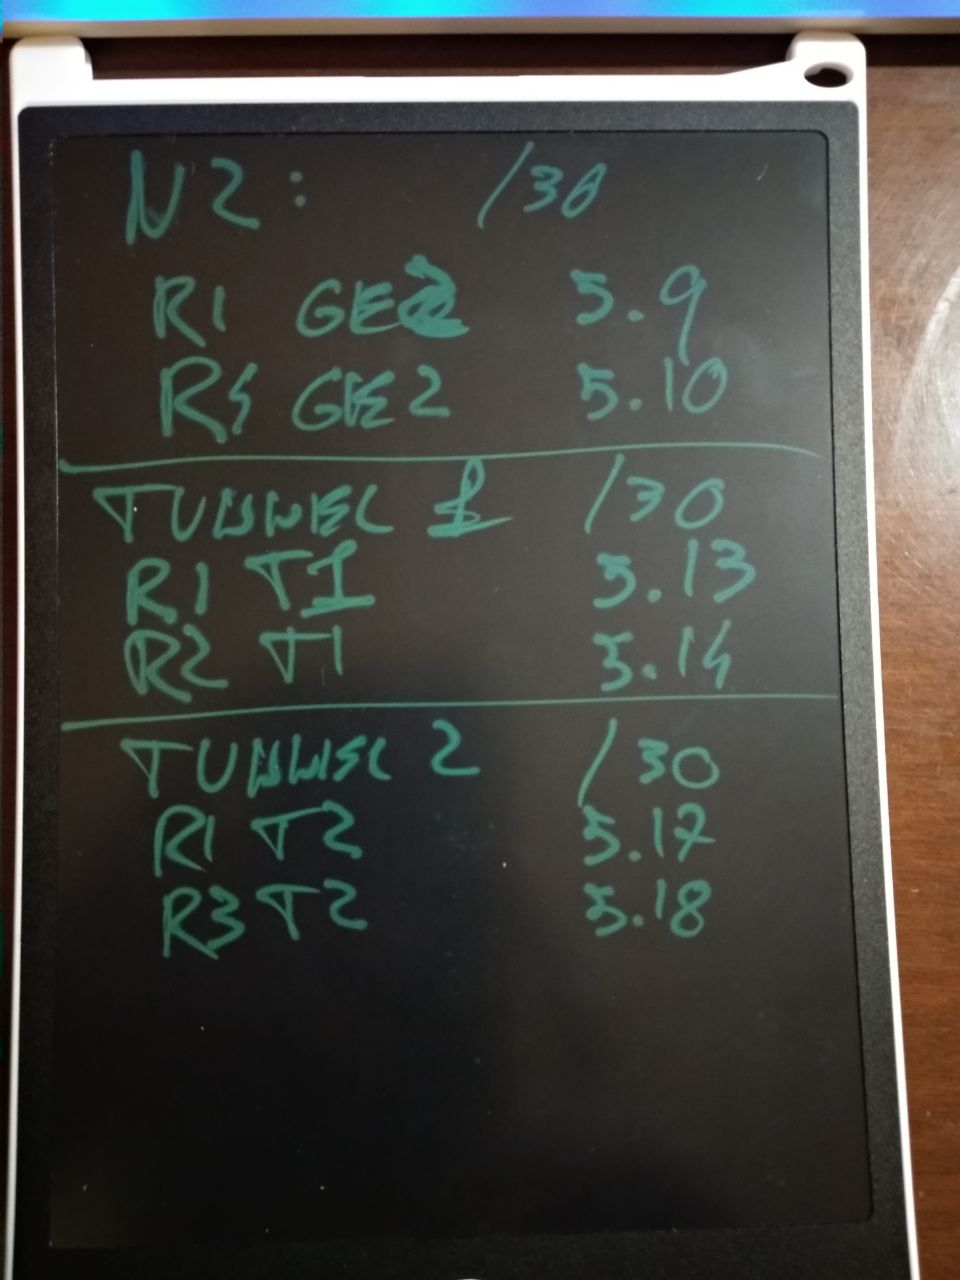 N2: /30
R1 GE2 5.9
R5 GE2 5.10
TUNNEL 1 /30
R1 T1 5.13
R2 T1 5.14
TUNNEL 2 /30
R1 T2 5.17
R3 T2 5.18